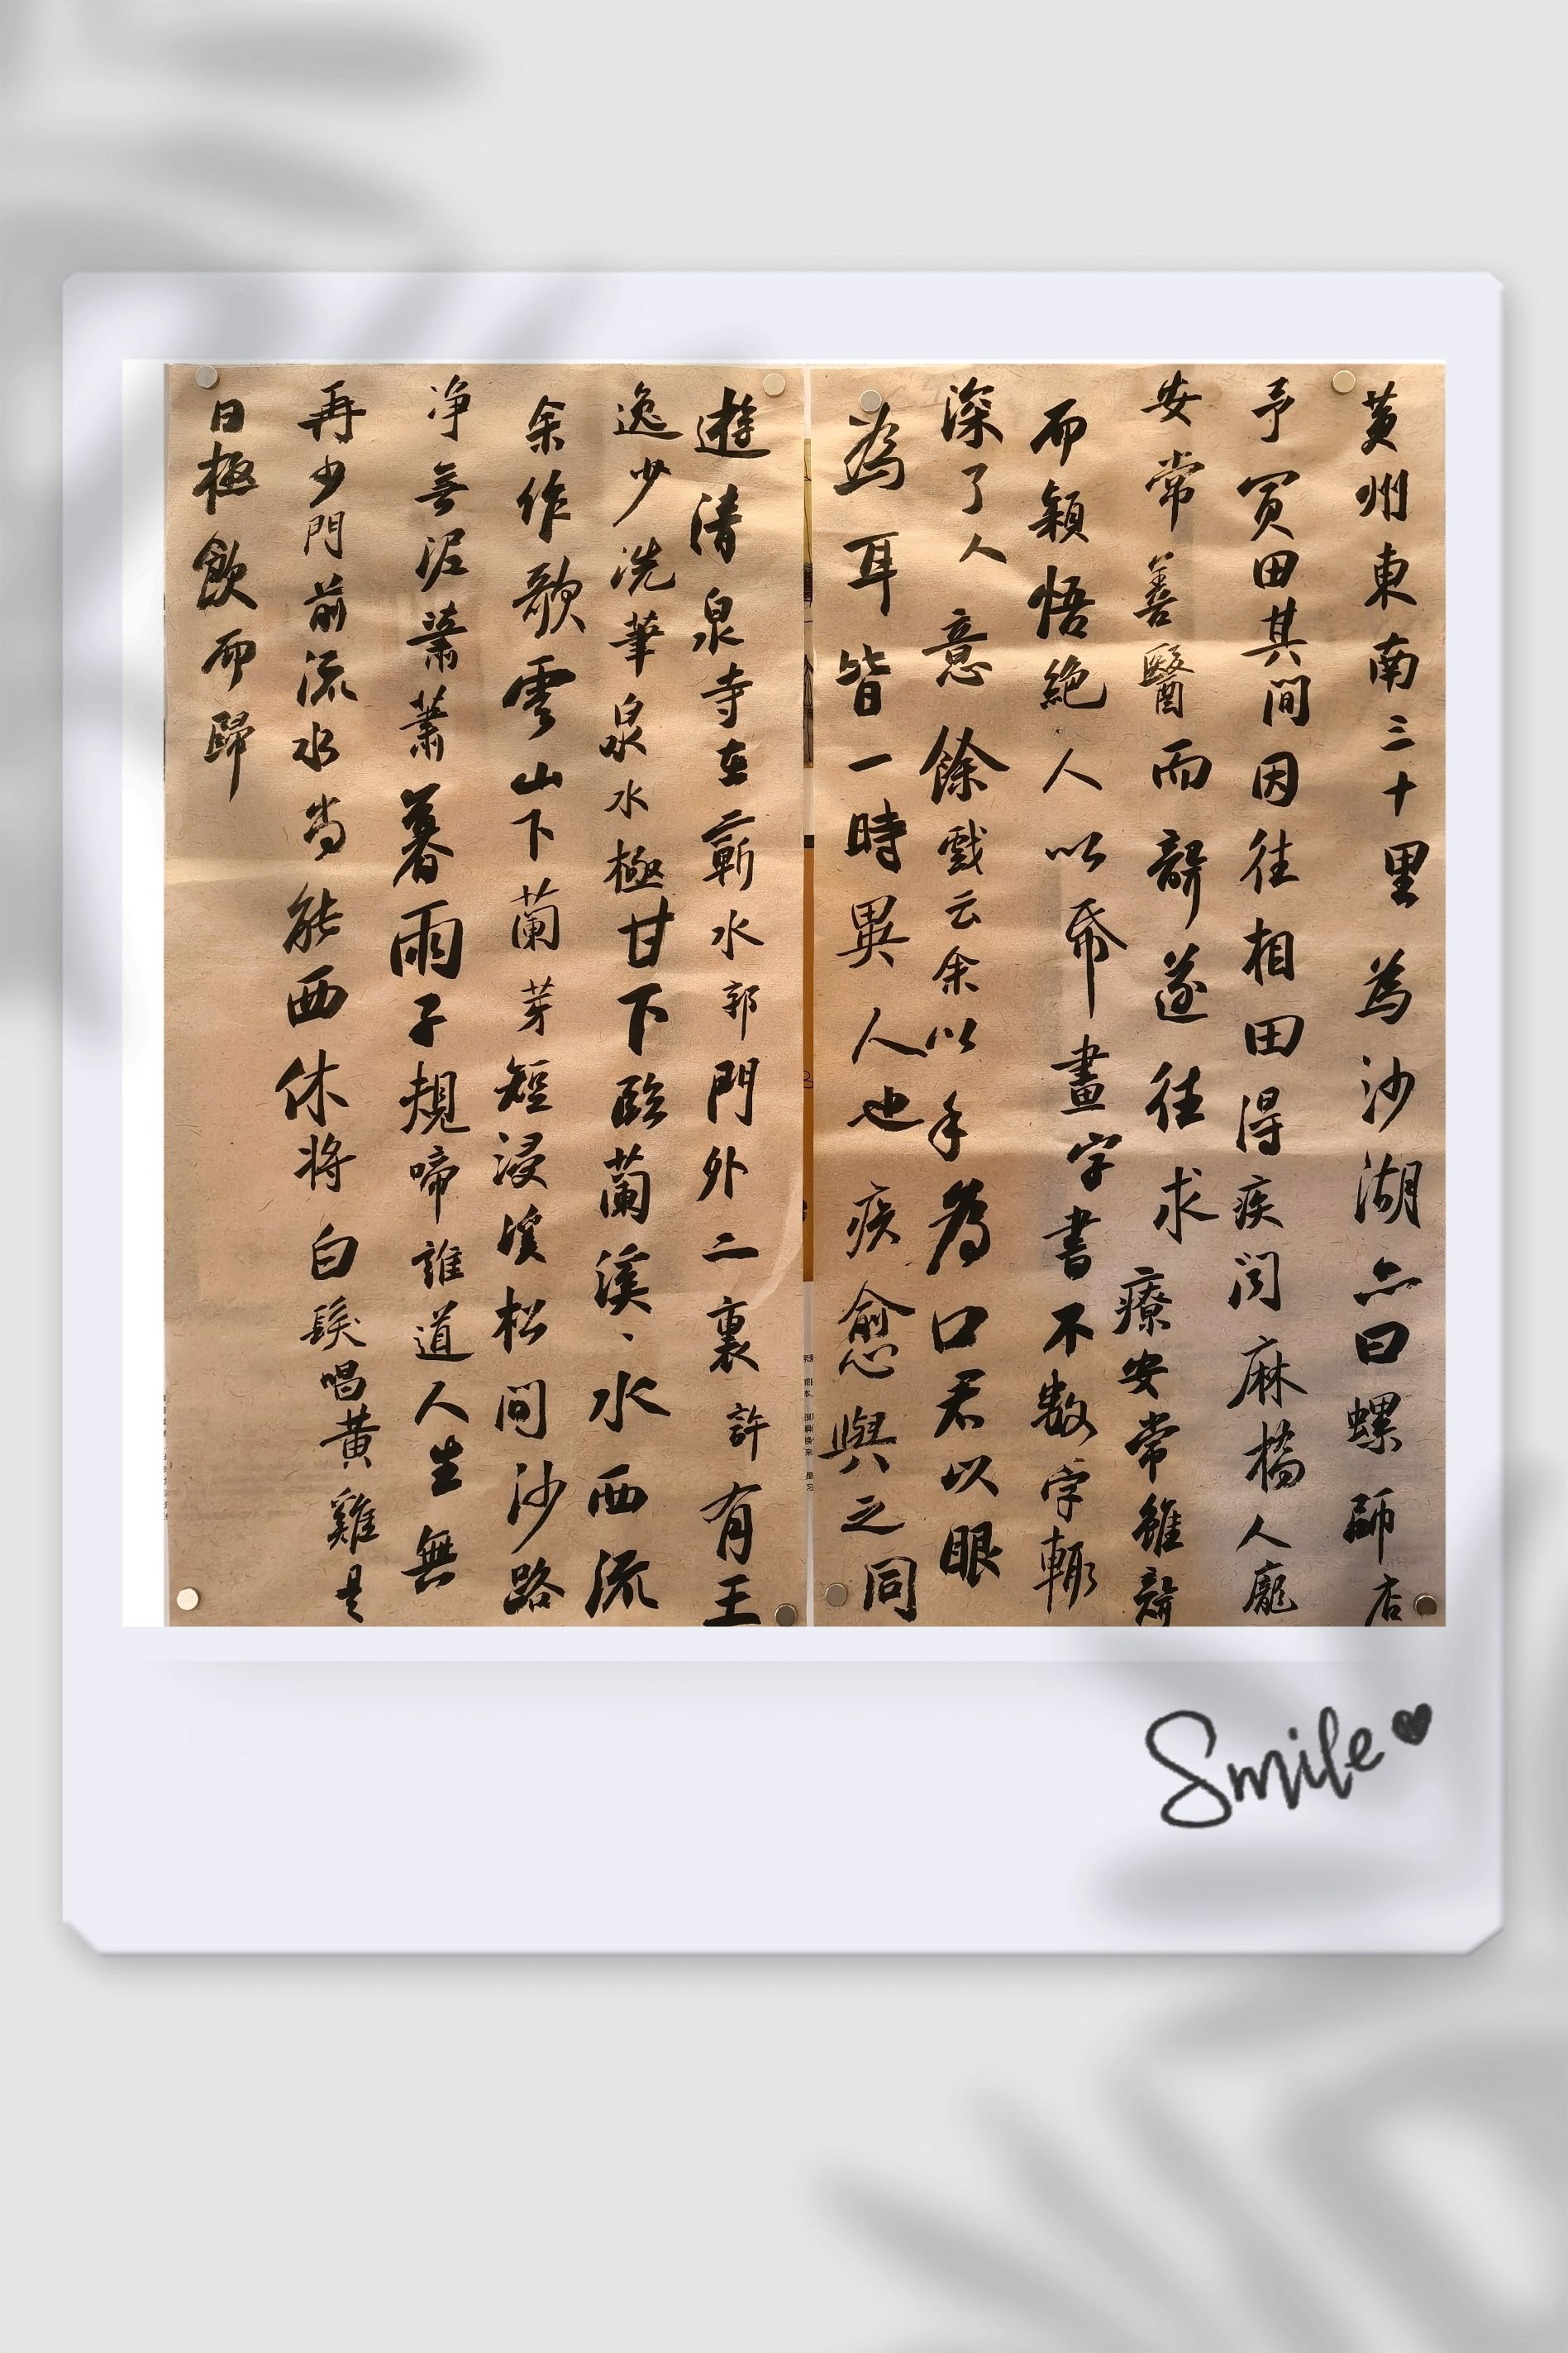 黃州東南三十里為沙湖亦曰螺師店
予買田其間因往相田得疾聞麻橋人龐
安常善醫而聾遂往求療安常雖聾
而穎悟絕人以帋畫字書不數字輒
深了人意餘戲云余以手為口君以眼
為耳皆一時異人也疾愈與之同
遊清泉寺在蘄水郭門外二裏許有王
逸少洗筆泉水極甘下臨蘭溪、水西流
余作歌雲山下蘭芽短浸溪松間沙路
净無泥蕭蕭暮雨子規啼誰道人生無
再少門前流水尚能西休將白髮唱黃雞是
日極飲而歸
Smile